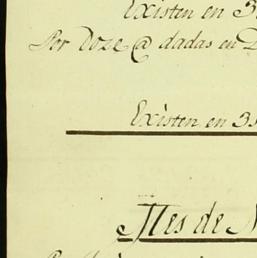 Existen en 3
Por Doze @ dadas en D
Existen en 31
Mes de N